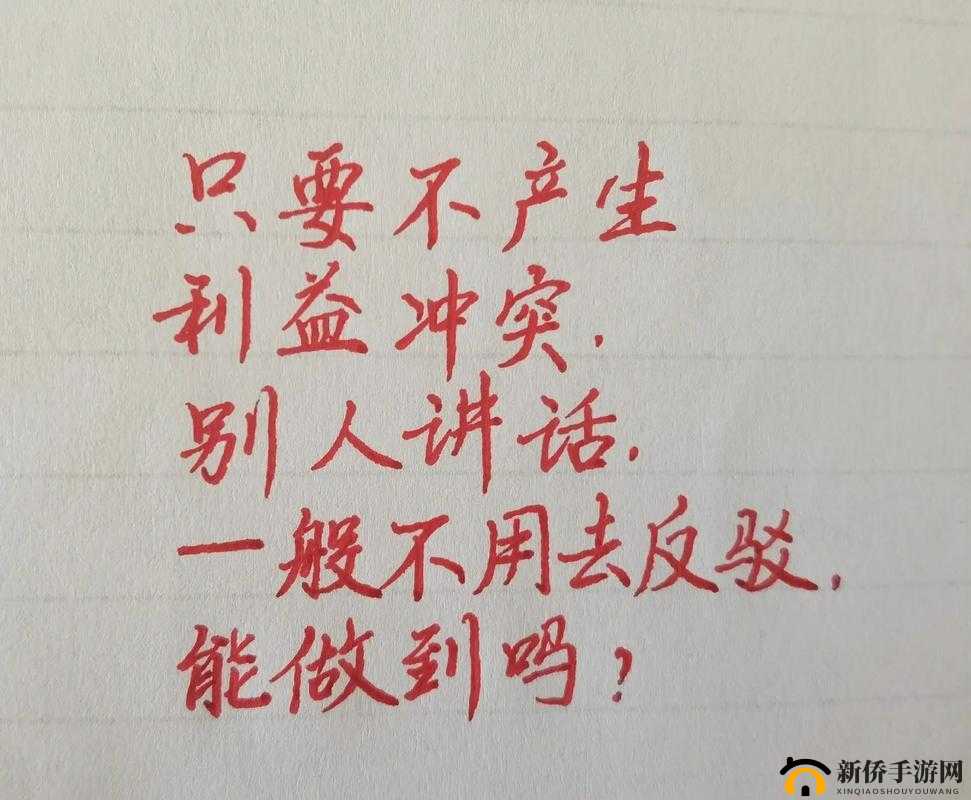 只要不产生
利益冲突.
别人讲话.
一般不用去反驳.
能做到吗?
新侨手游网
XINQIAOSHOUYOUWANG